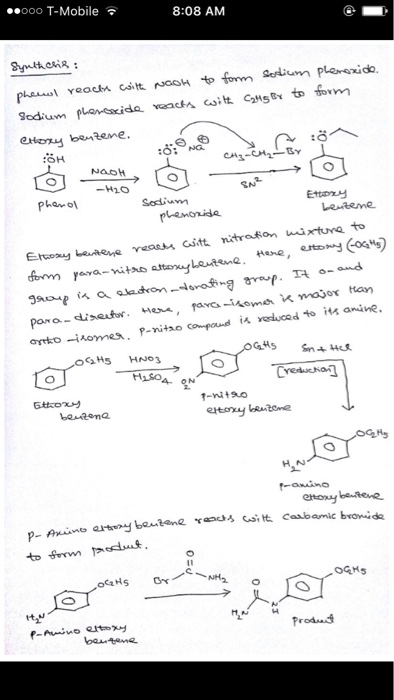 T-Mobile
8:08 AM
Synthesis :
phenol reacts with NaOH to form sodium phenoxide.
Sodium phenoxide reacts with C2H5Br to form
ethoxy benzene.
:ÖH
NaOH
-H2O
:Ö:⊖ Na⊕
CH3-CH2-Br
SN²
:Ö
phenol
Sodium
phenoxide
Ethoxy
benzene
Ethoxy benzene reacts with nitration mixture to
form para-nitro ethoxybenzene. Here, ethoxy (-OC2H5)
group is a electron-donating group. It o- and
para-director. Here, para-isomer is major than
ortho-isomer. p-nitro compound is reduced to its amine.
OC2H5
HNO3
H2SO4
O2N
OC2H5
Sn + HCl
[reduction]
Ethoxy
benzene
p-nitro
ethoxy benzene
OC2H5
H2N
p-amino
ethoxy benzene
p-Amino ethoxy benzene reacts with Carbamic bromide
to form product.
OC2H5
H2N
Br-C-NH2
O
O
H2N
N
H
OC2H5
p-Amino ethoxy
benzene
product